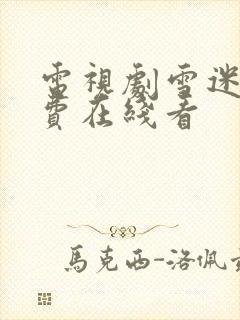 電視劇雪迷
費在綫看
馬克西-洛佩